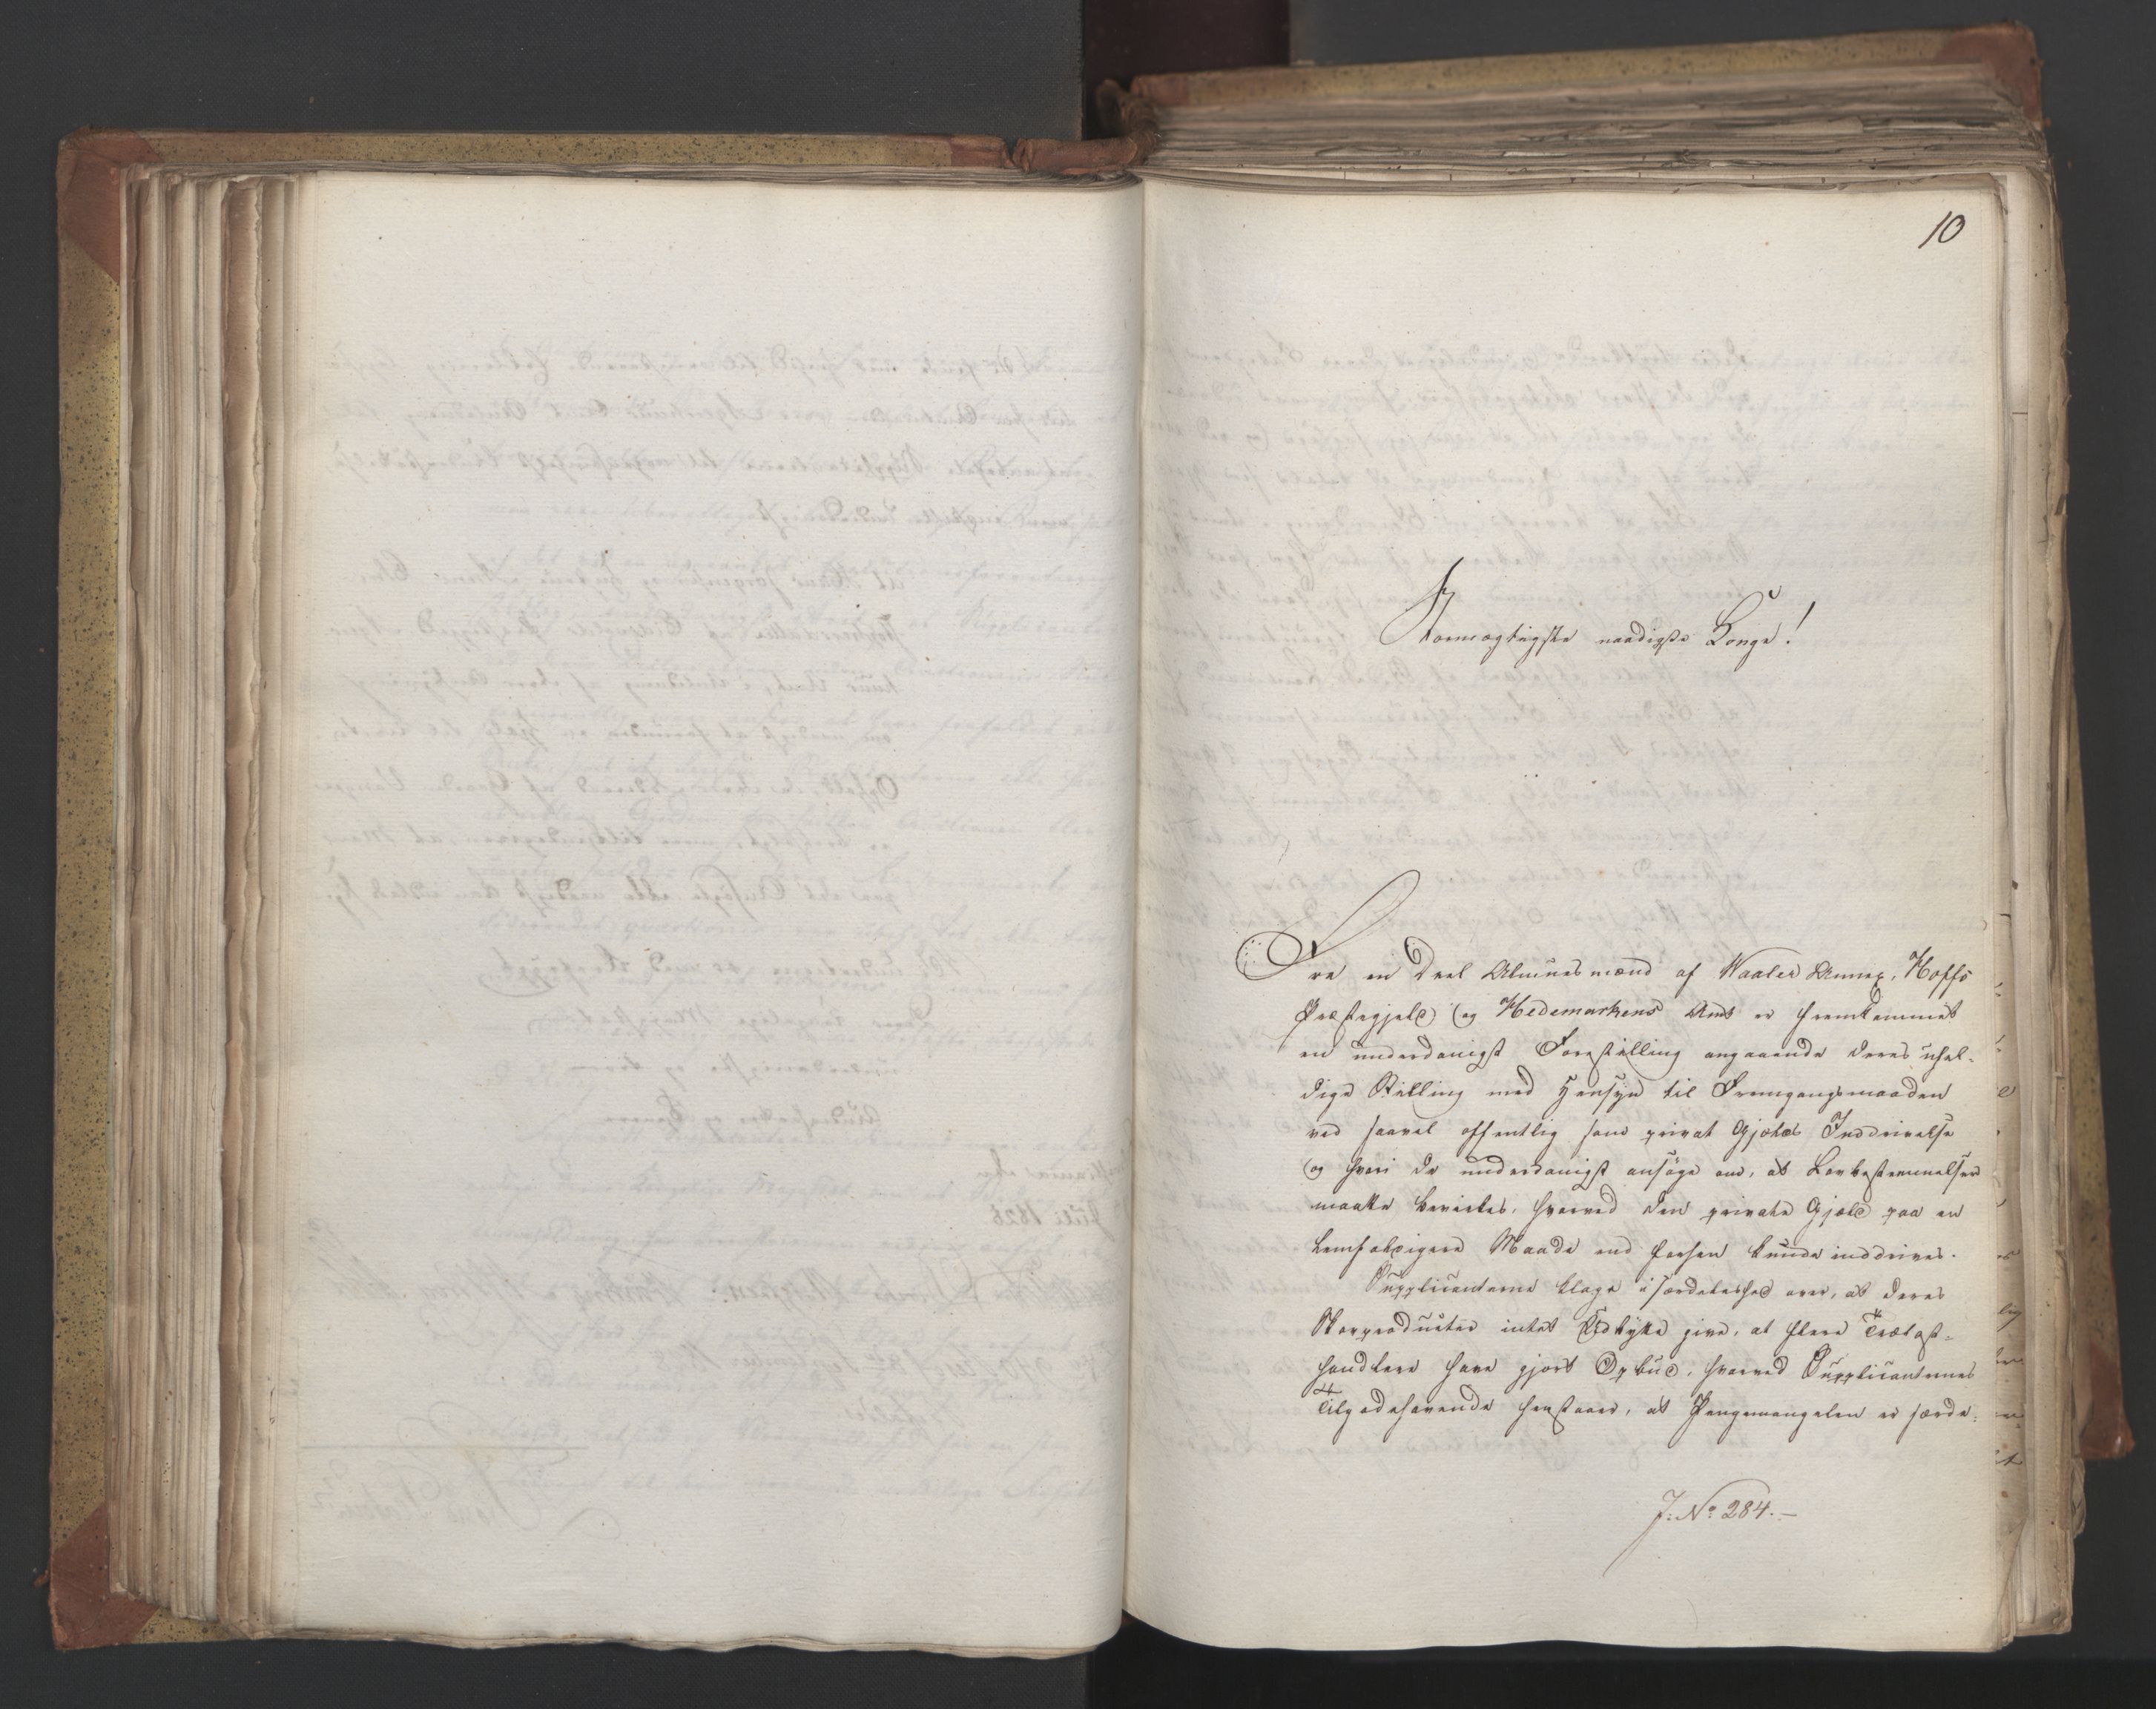 10
Stormægtigste naadigste Konge!
Fra en Deel Almuesmænd af Waaler Annex, Hoffs
Præstegjeld og Hedemarkens Amt er fremkommet
en underdanigst Forestilling angaaende deres uhel-
dige Stilling med Hensyn til Fremgangsmaaden
ved saavel offentlig som privat Gjælds Inddrivelse
og hvori de underdanigst ansöge om, at Lovbestemmelser
maatte bevirkes, hvorved den private Gjæld paa en
lemfældigere Maade end forhen kunde inddrives.
Supplicanterne klage i særdeleshed over, at deres
Skovproducter intet Udbytte give, at flere Trælast-
handlere have gjort Opbud, hvorved Supplicanternes
Tilgodehavende henstaaer, at Pengemangelen er særde-
J: No 284. –